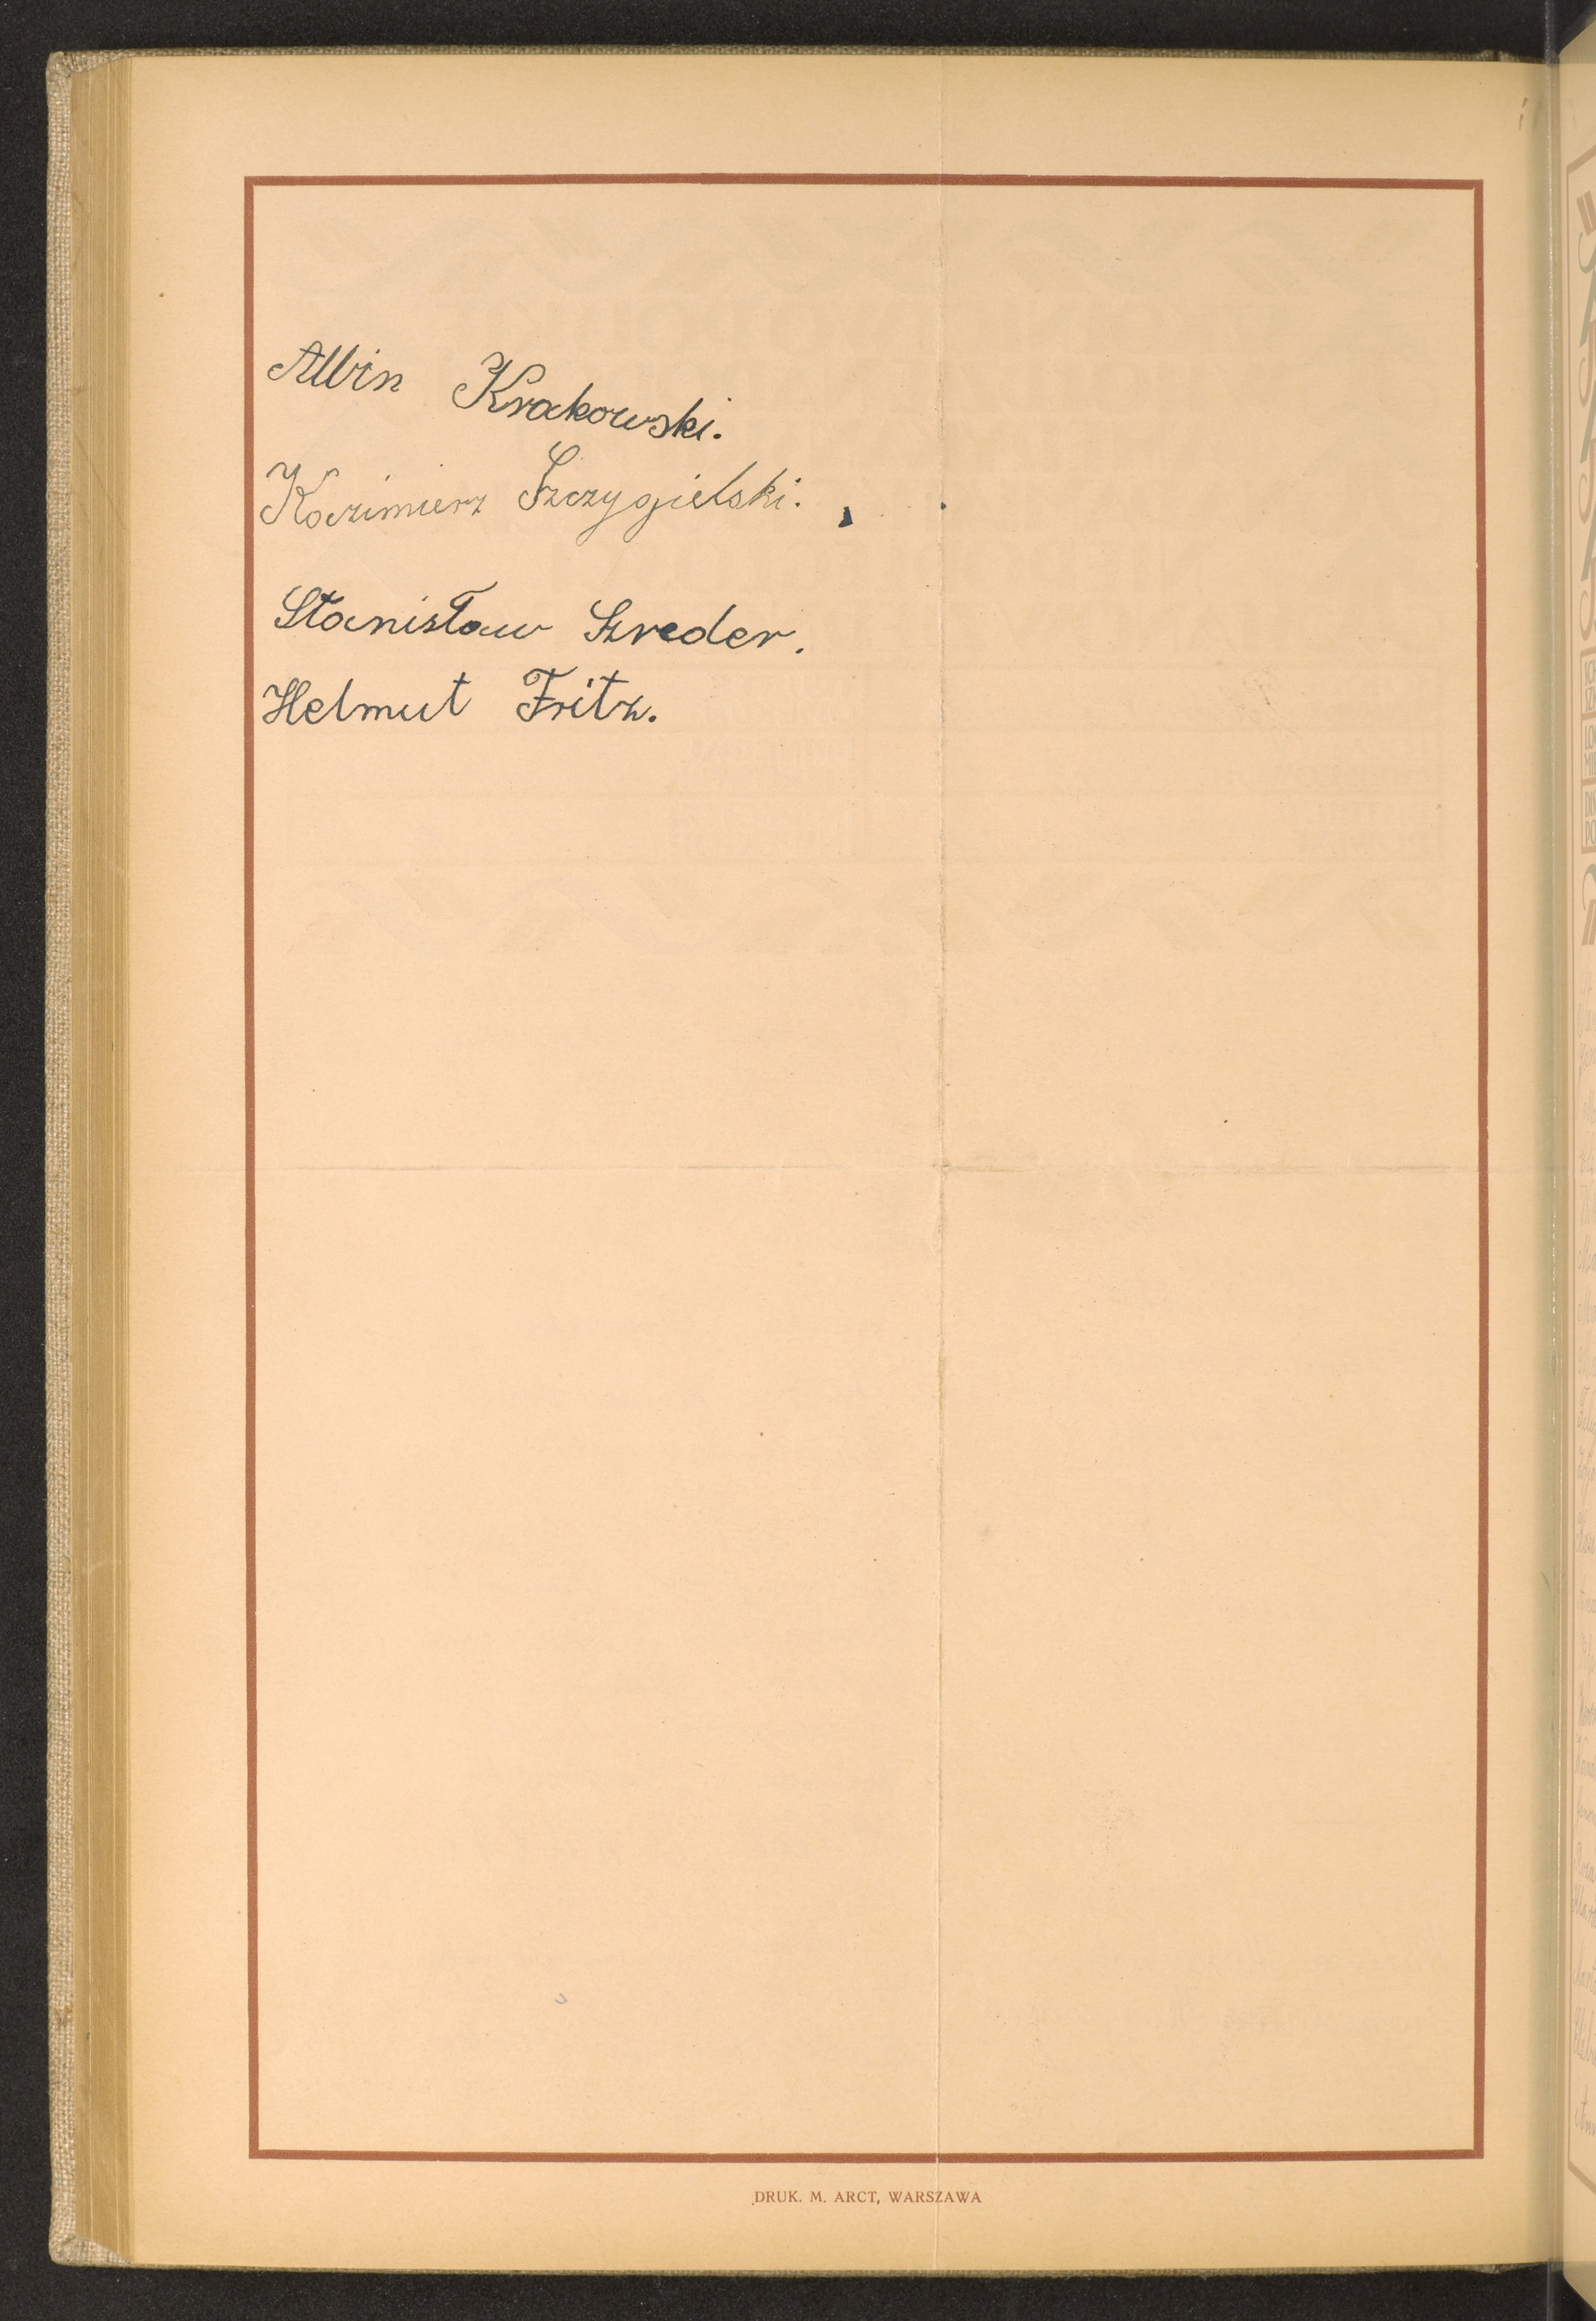 Albin Krakowski.
Kazimierz Szczygielski.
Stanisław Szreder.
Helmut Fritz.
DRUK. M. ARCT, WARSZAWA